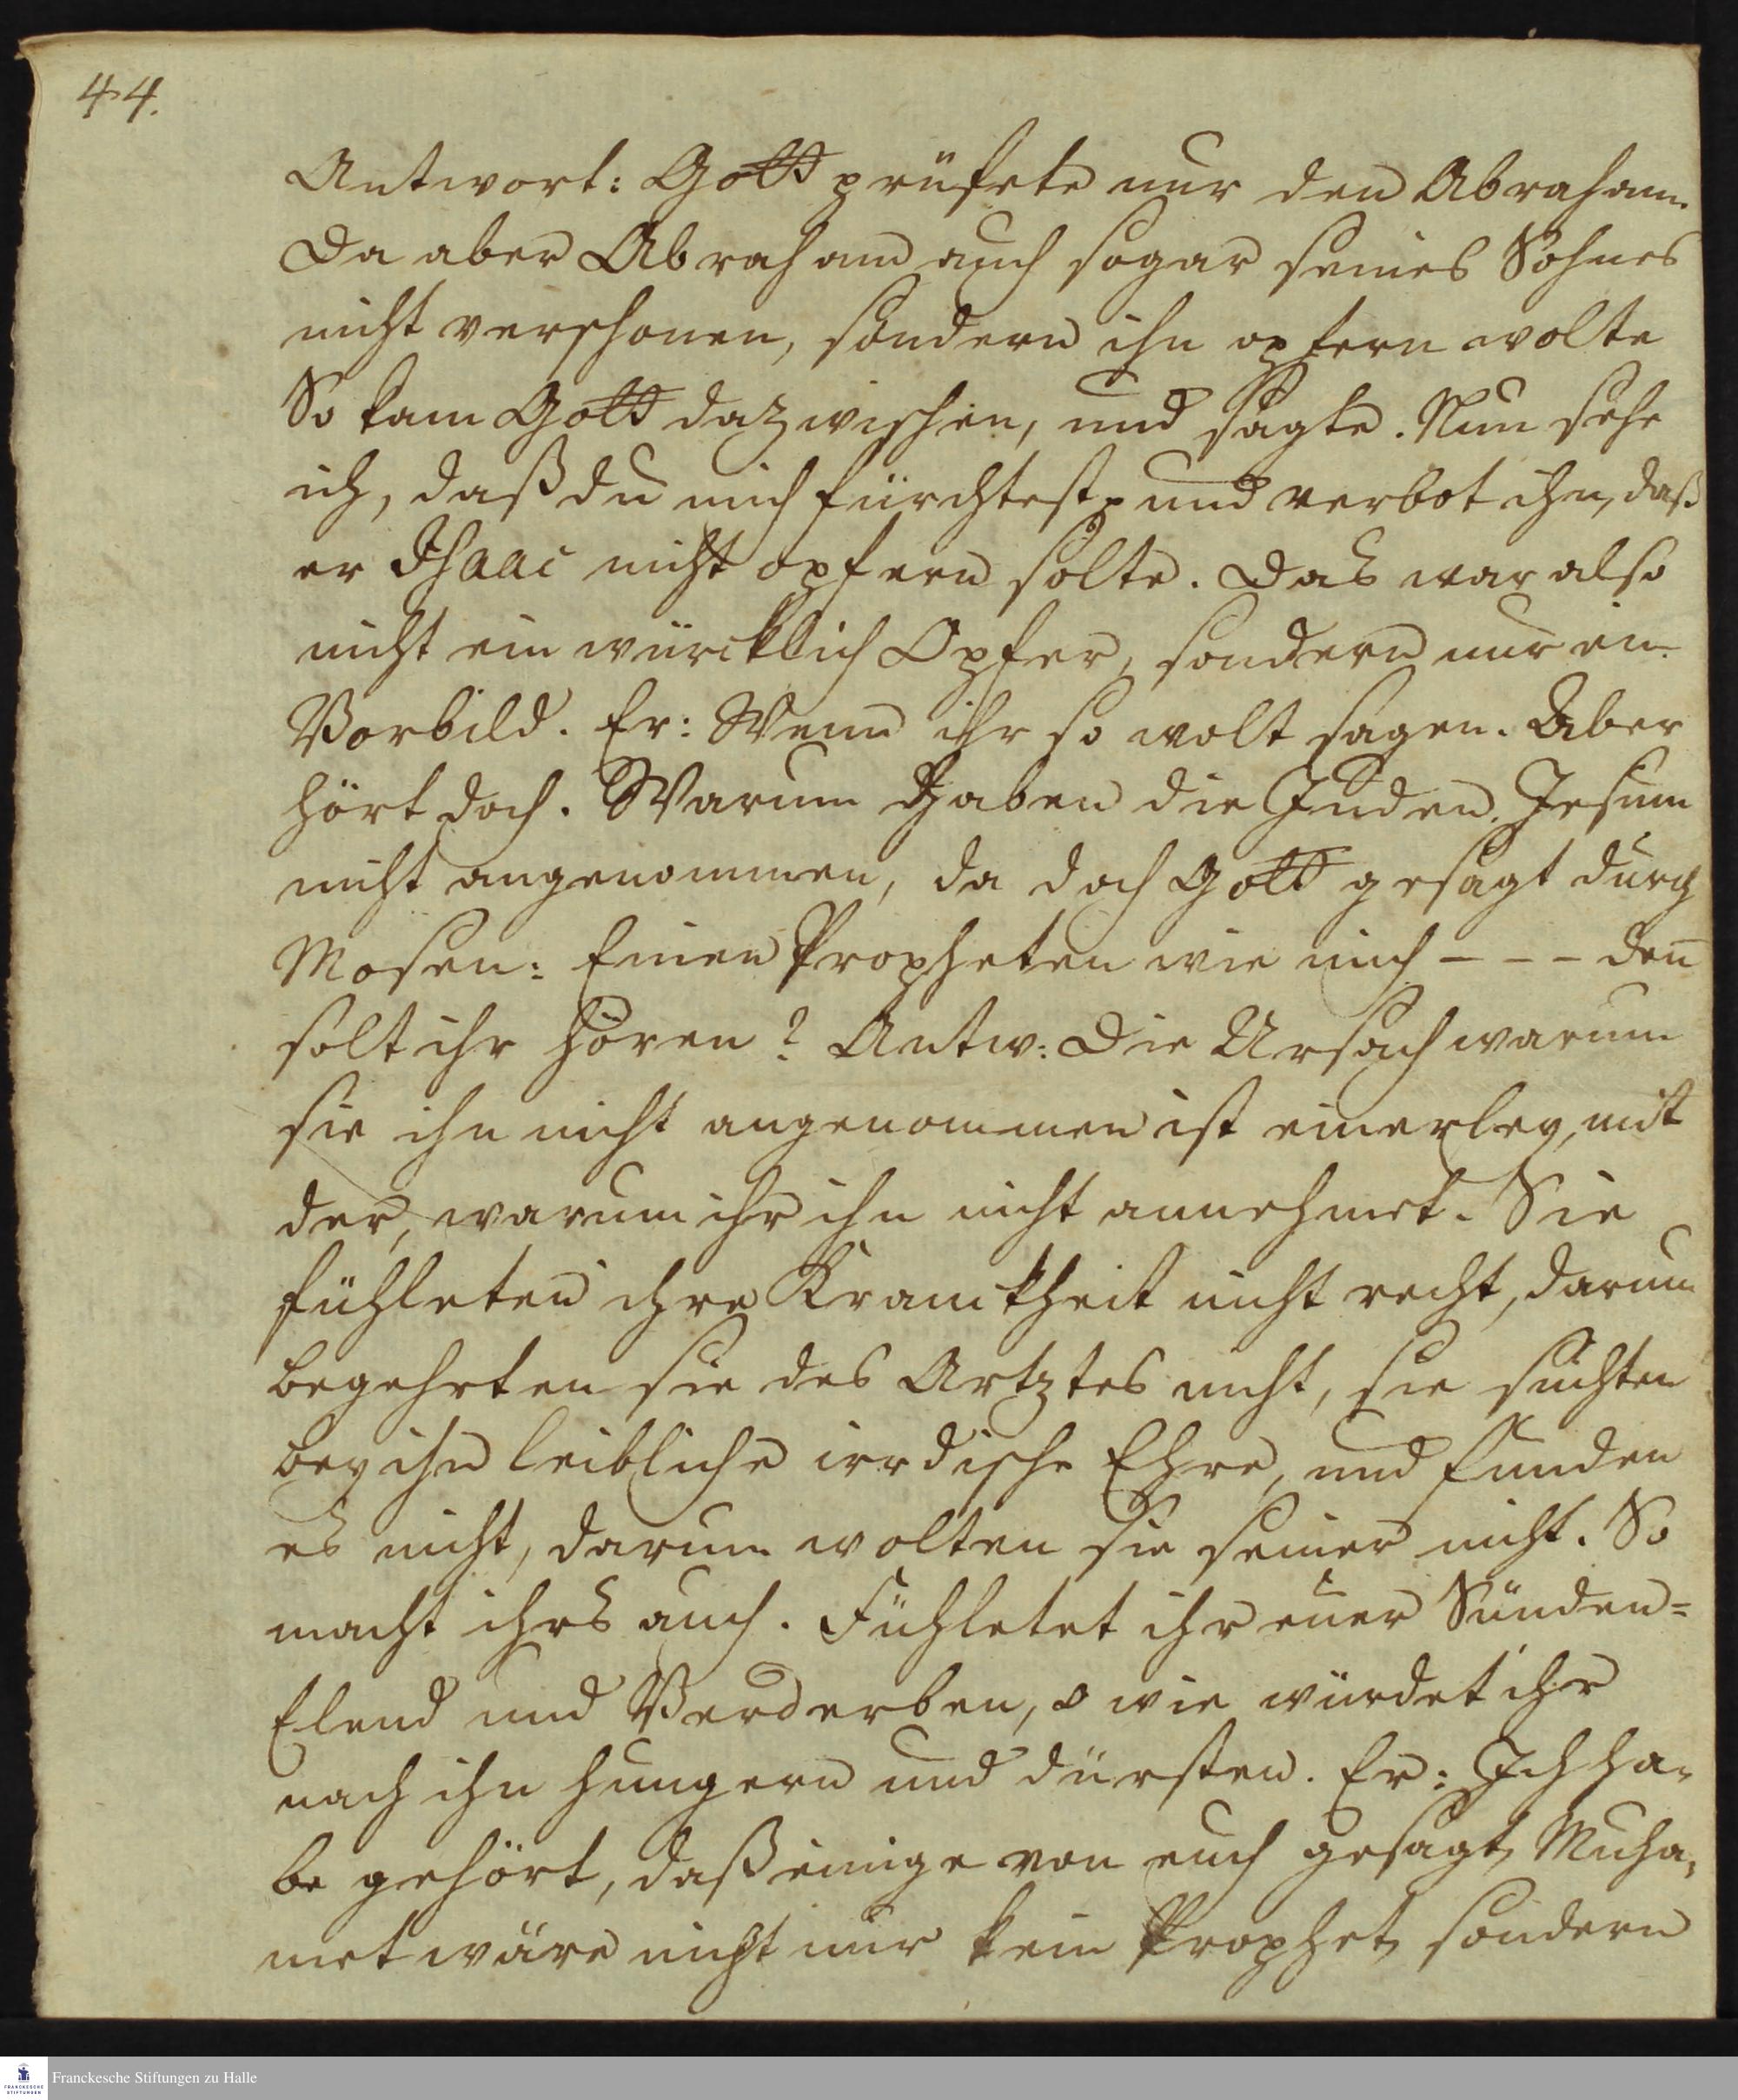 44.
Antwort: Gott prüfete nur den Abraham.
Da aber Abraham auch sogar seines Sohnes
nicht verschonen, sondern ihn opfern wolte
So kam Gott dazwischen, und sagte. Nun sehe
ich, daß du mich fürchtest, und verbot ihn, daß
er Isaac nicht opfern solte. Das war also
nicht ein würcklich Opfer, sondern nur ein
Vorbild. Er: Wenn ihr so wolt sagen. Aber
hört doch. Warum haben die Juden Jesum
nicht angenommen, da doch Gott gesagt durch
Mosen: Einen Propheten wie mich - - - den
solt ihr hören? Antw: Die Ursach warum
sie ihn nicht angenommen ist einerley, mit
der, warum ihr ihn nicht annehmet. Sie
fühleten ihre Kranckheit nicht recht, darum
begehrten sie des Artztes nicht, sie suchten
bey ihn leibliche irrdische Ehre, und funden
es nicht, darum wolten sie seiner nicht. So
macht ihrs auch. Fühletet ihr euer Sünden=
Elend und Verderben, o wie würdet ihr
nach ihn hungern und dürsten. Er: Ich ha-
be gehört, daß einige von euch gesagt, Muha-
met wäre nicht nur kein Prophet, sondern
FRANCKESCHE
STIFTUNGEN
Franckesche Stiftungen zu Halle